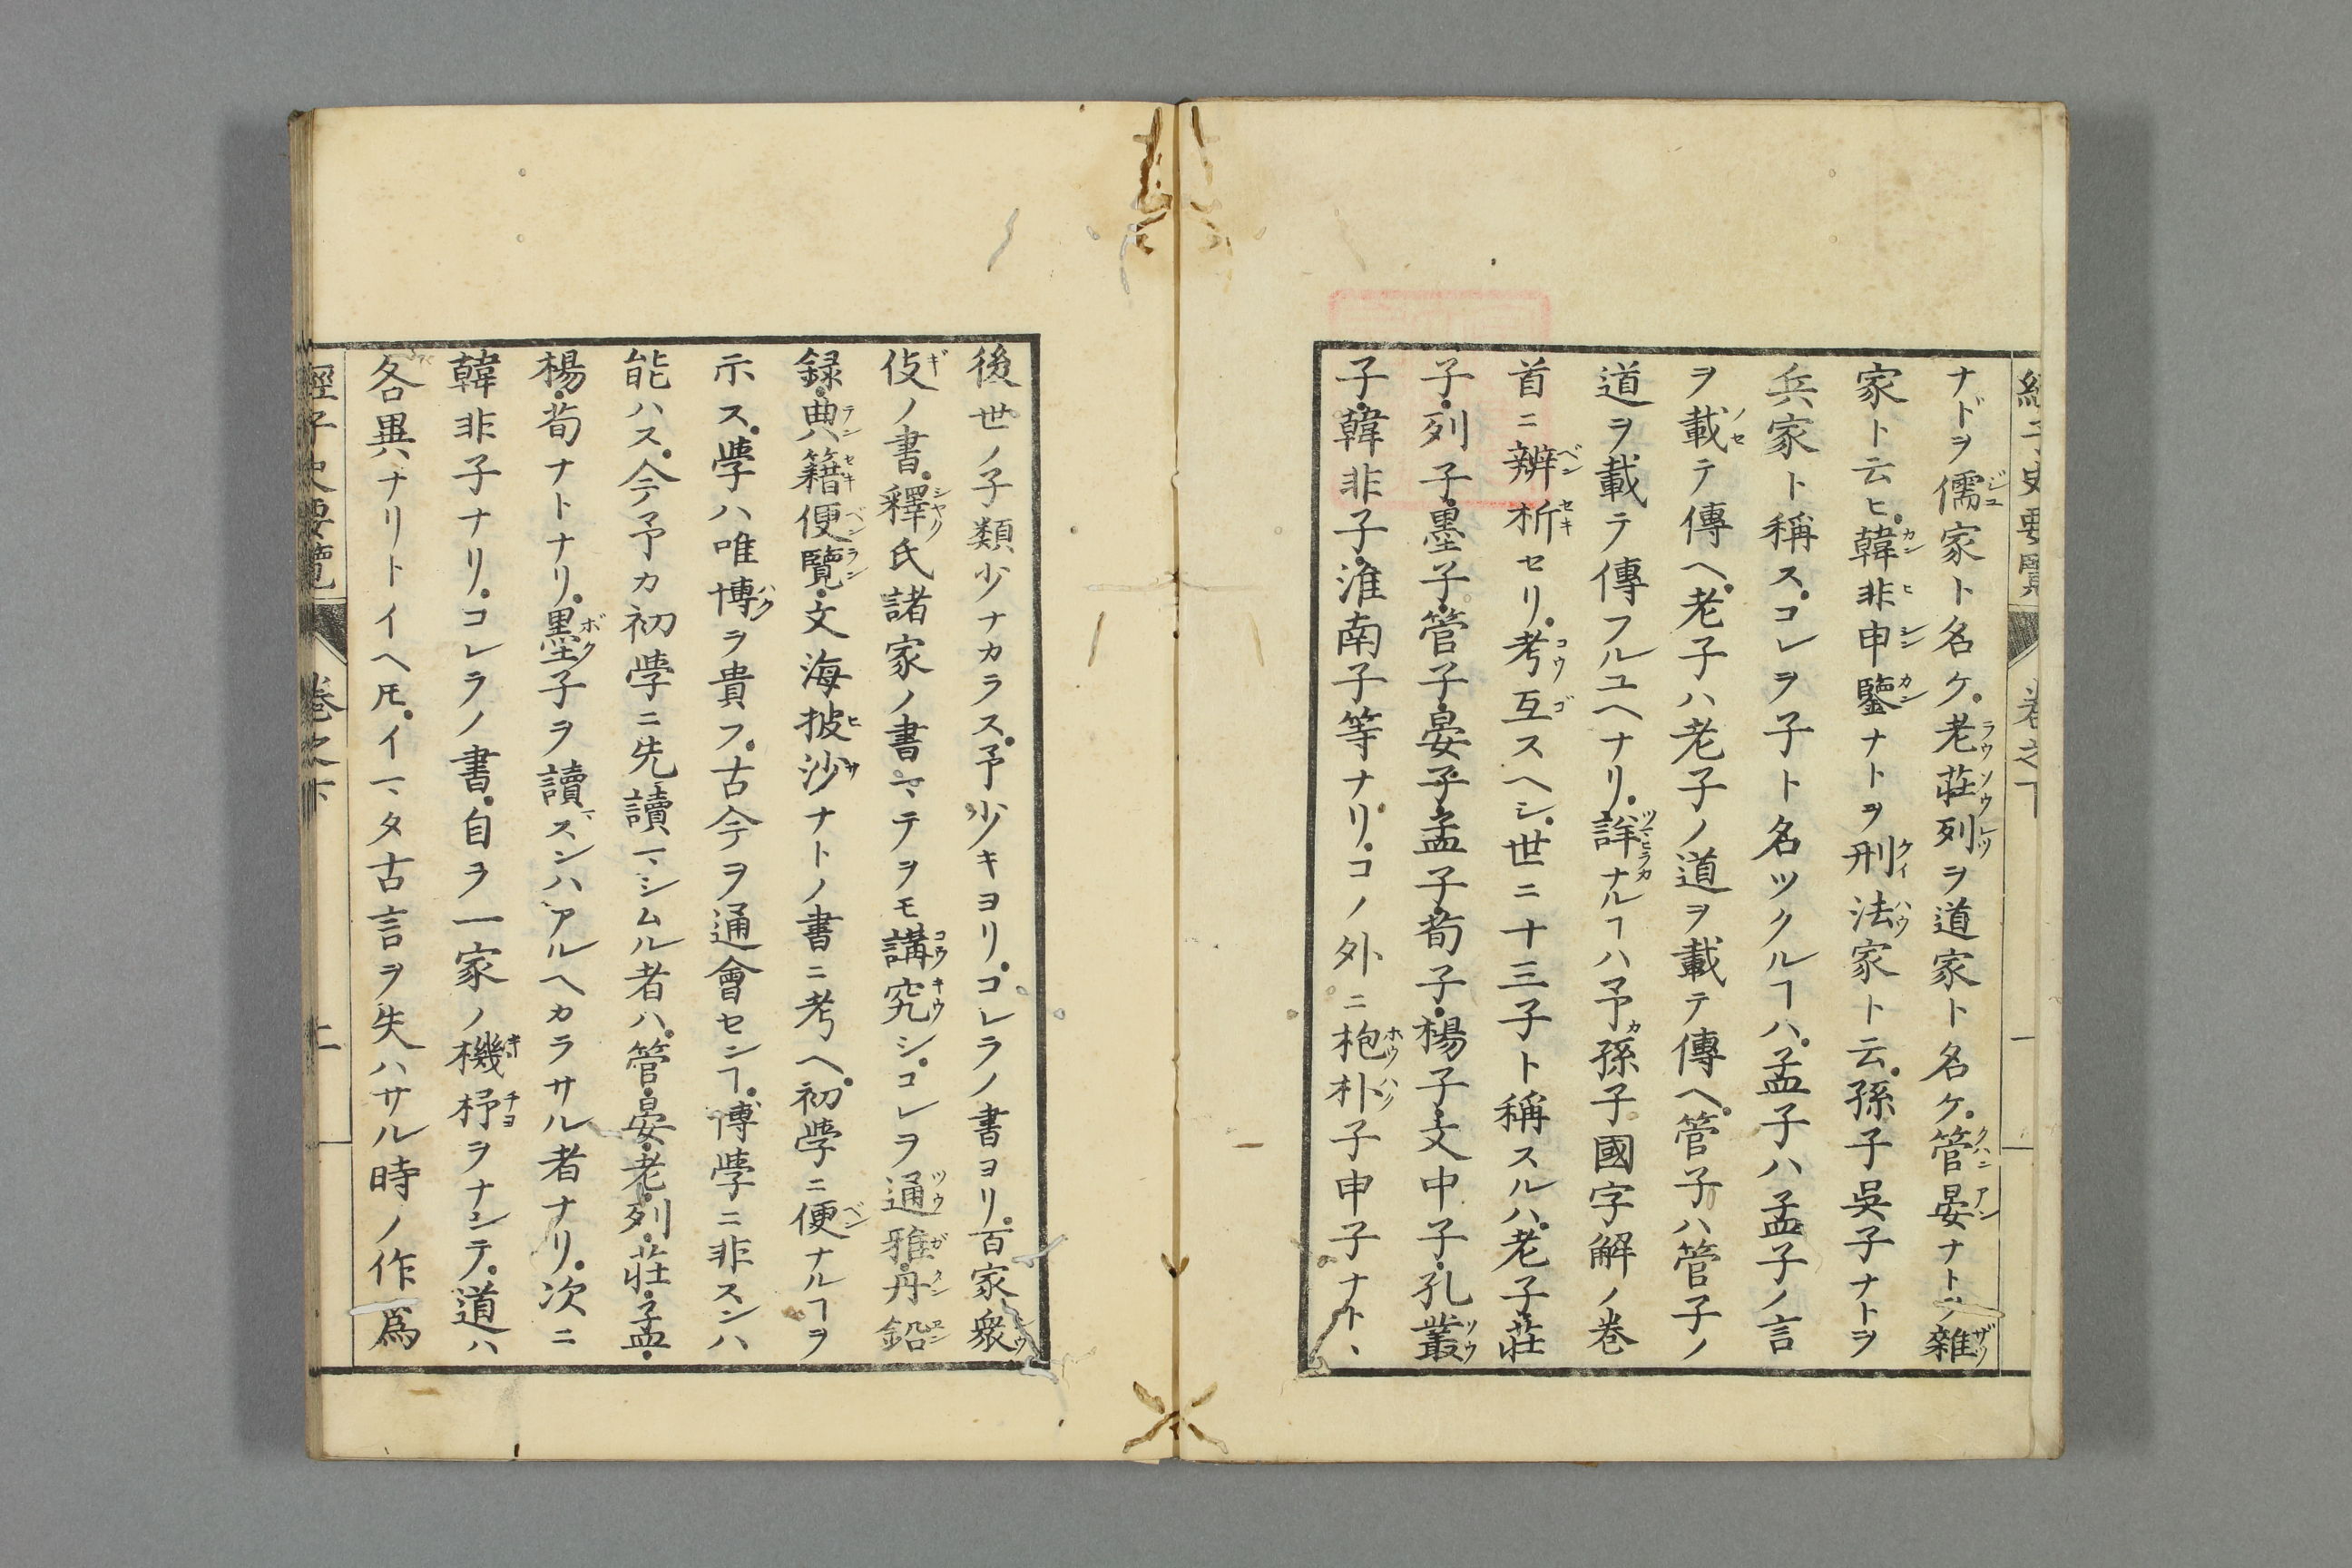 經子史要覽 卷之下 一
ナドヲ儒家ト名ケ。老莊列ヲ道家ト名ケ。管晏ナトヲ雜
家ト云ヒ。韓非申鑒ナトヲ刑法家ト云。孫子吳子ナトヲ
兵家ト稱ス。コレヲ子ト名ツクルヿハ。孟子ハ孟子ノ言
ヲ載テ傳ヘ。老子ハ老子ノ道ヲ載テ傳ヘ。管子ハ管子ノ
道ヲ載テ傳フルユヘナリ。詳ナルヿハ予カ孫子國字解ノ巻
首ニ辨析セリ。考互スヘシ。世ニ十三子ト稱スルハ。老子莊
子・列子・墨子・管子・晏子・孟子・荀子・楊子・文中子・孔叢
子・韓非子・淮南子等ナリ。コノ外ニ枹朴子申子ナト、
後世ノ子類少ナカラス。予少キヨリ。コレラノ書ヨリ。百家衆
伎ノ書。釋氏諸家ノ書マテヲモ講究シ。コレヲ通雅・丹鉛
録・典籍便覽・文海披沙ナトノ書ニ考ヘ。初學ニ便ナルヿヲ
示ス。學ハ唯博ヲ貴フ。古今ヲ通會センヿ。博學ニ非スンハ
能ハス。今予カ初學ニ先讀マシムル者ハ。管・晏・老・列・莊・孟・
楊・荀ナトナリ。墨子ヲ讀スンハアルヘカラサル者ナリ。次ニ
韓非子ナリ。コレラノ書。自ヲ一家ノ機杼ヲナシテ。道ハ
各異ナリトイヘ𪜈。イマタ古言ヲ失ハサル時ノ作爲
經子史要覽 卷之下 二